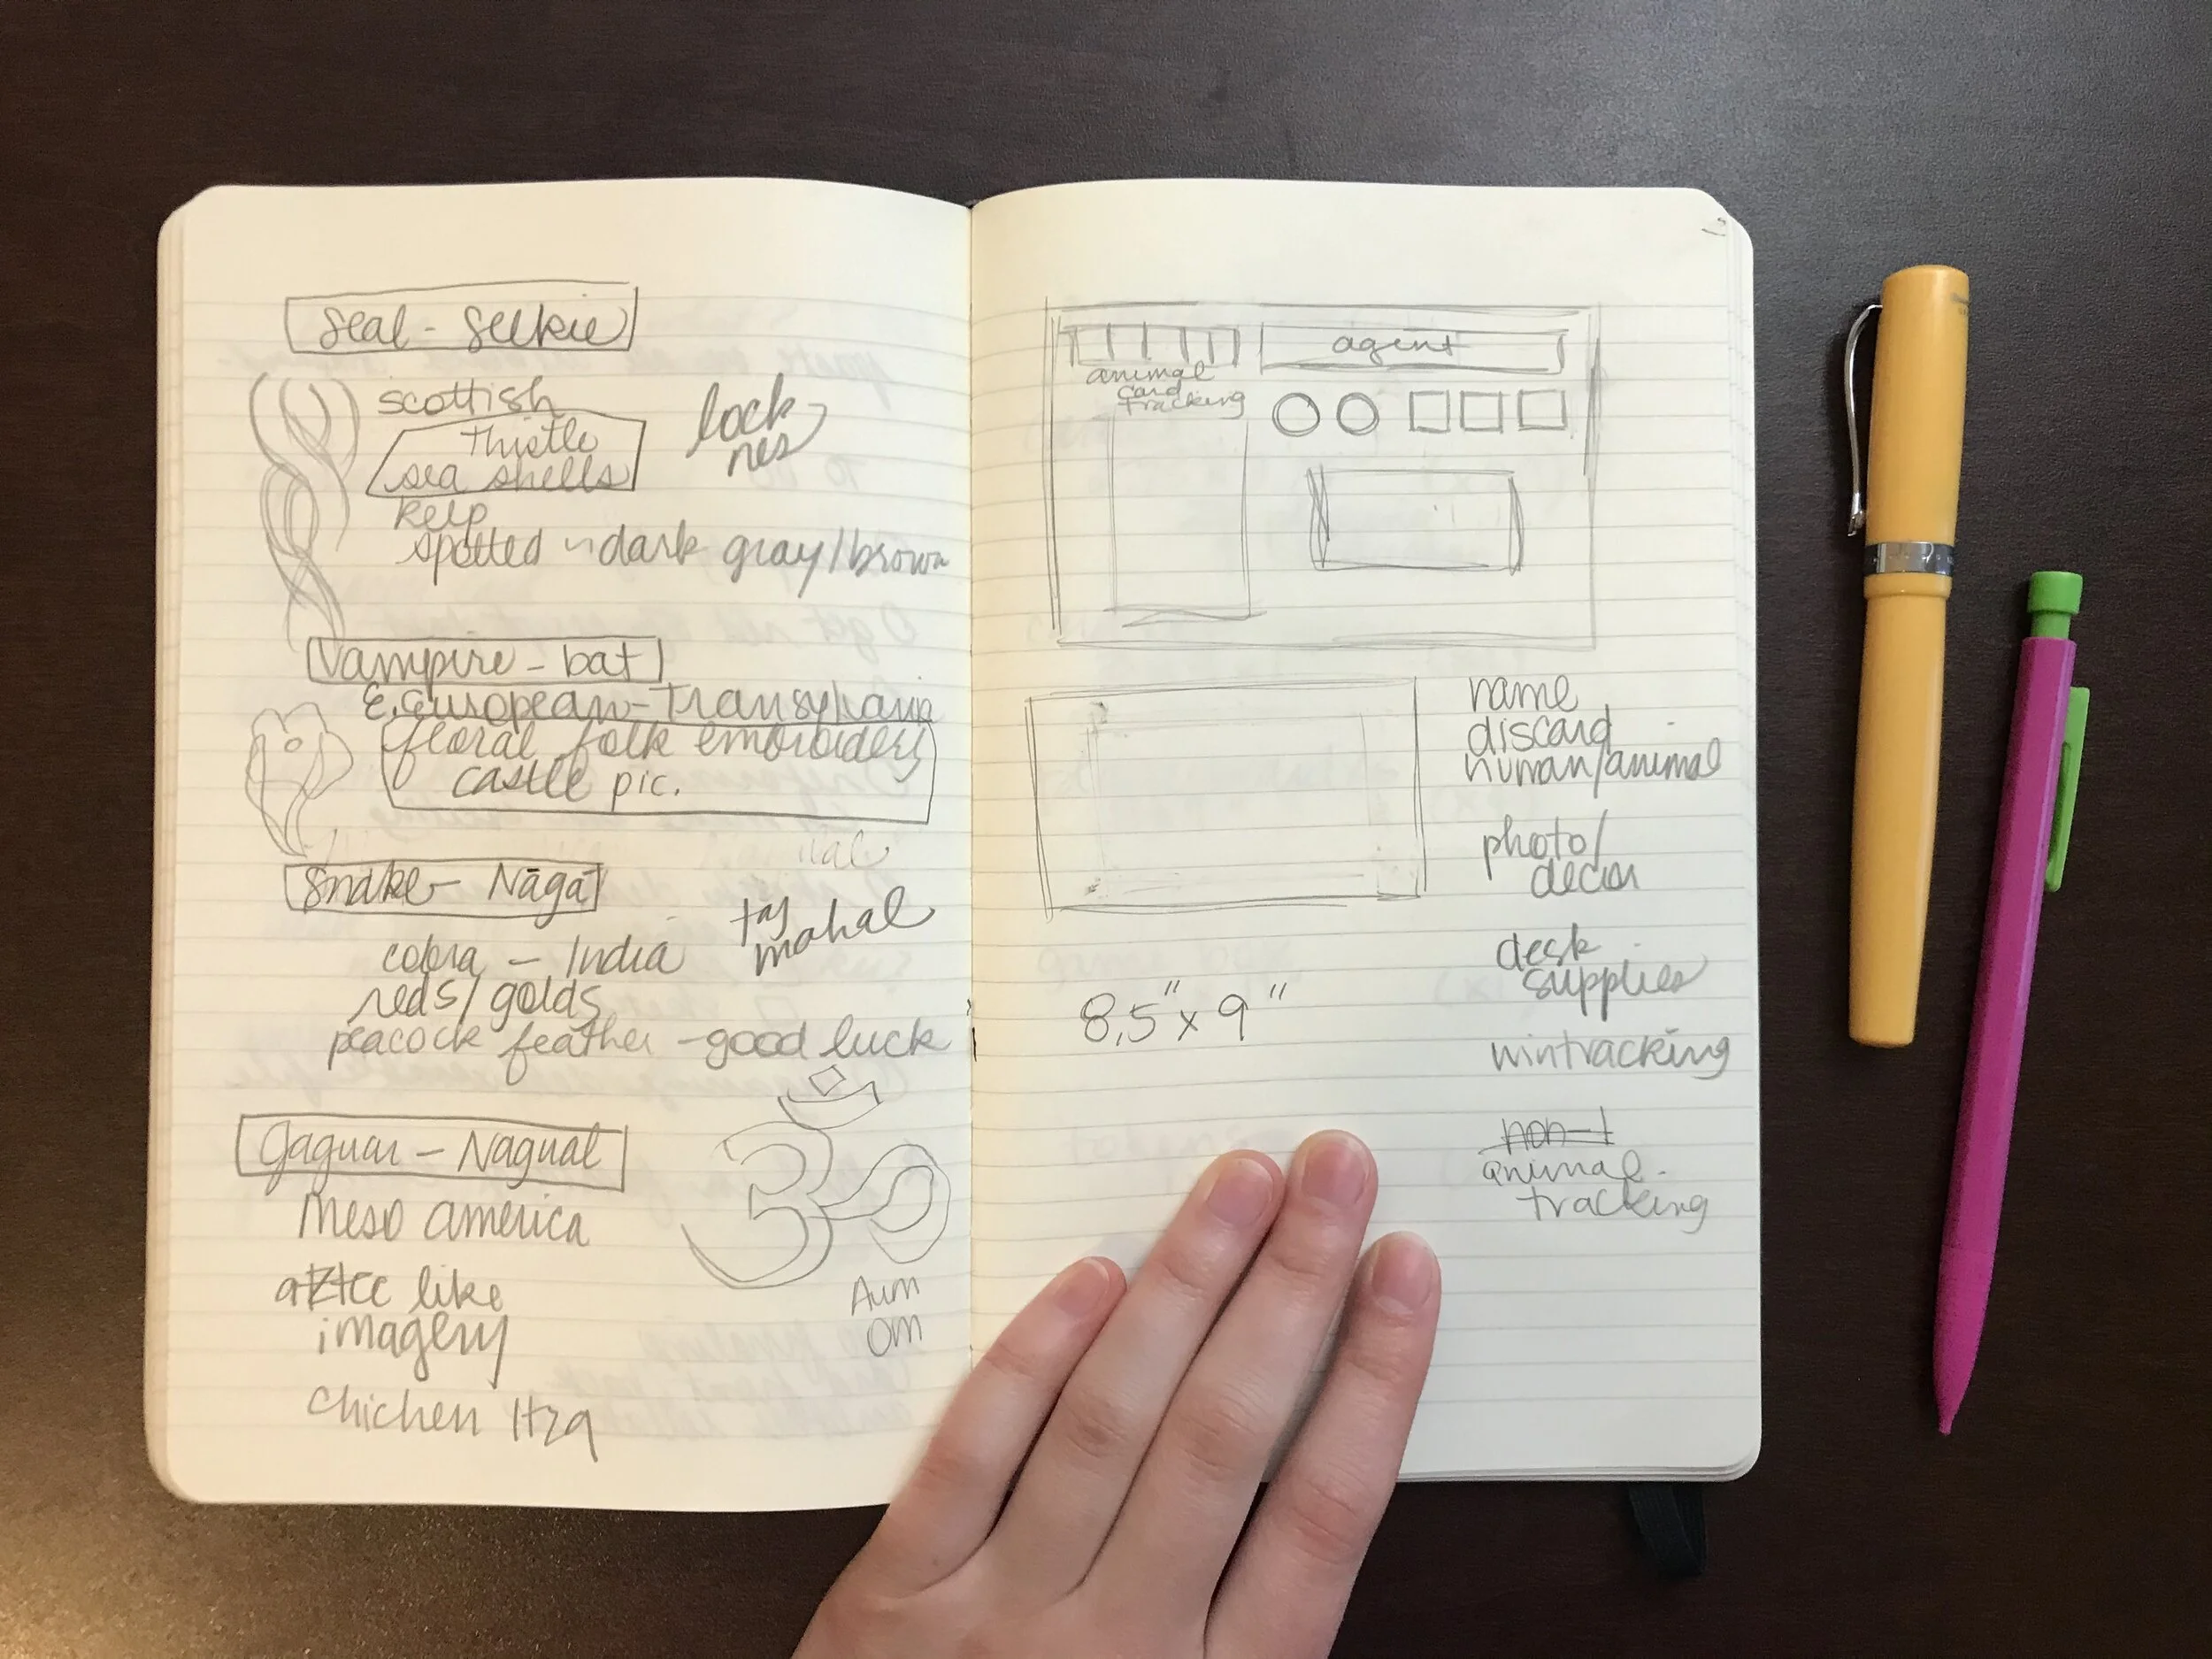 Seal - Selkie
scottish
thistle
sea shells
lock
nes
kelp
spotted ~ dark gray/brown
Vampire - bat
E. European - Transylvania
floral folk embroidery
castle pic.
Snake - Nāga
taj
mahal
cobra - India
reds/golds
peacock feather - good luck
Jaguar - Nagual
Meso america
aztec like
imagery
Aum
Om
chichen Itza
agent
animal
card
tracking
name
discard
human/animal
photo/
decor
desk
supplies
8.5" x 9"
wintracking
non-t
animal-
tracking